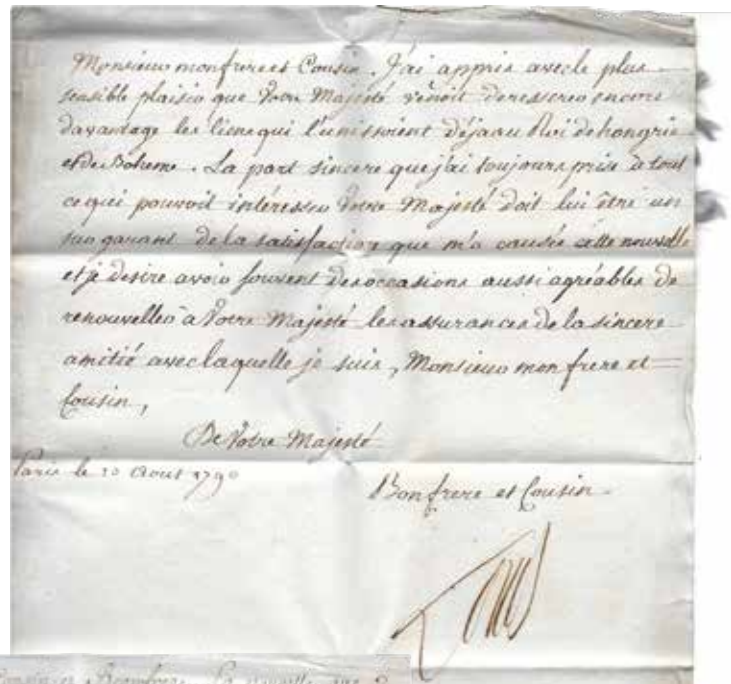 Monsieur mon frere et Cousin. J'ai appris avec le plus
sensible plaisir que Votre Majesté venoit de resserer encore
davantage les liens qui l'unissoient déja au Roi de hongrie
et de Boheme. La part sincere que j'ai toujours prise à tout
ce qui pouvoit intéresser Votre Majesté doit lui être un
sur garant de la satisfaction que m'a causée cette nouvelle
et je desire avoir souvent des occasions aussi agréables de
renouveller à Votre Majesté les assurances de la sincere
amitié avec laquelle je suis, Monsieur mon frere et
Cousin,
De Votre Majesté
Paris le 20 Aout 1790
Bon frere et Cousin.
Louis